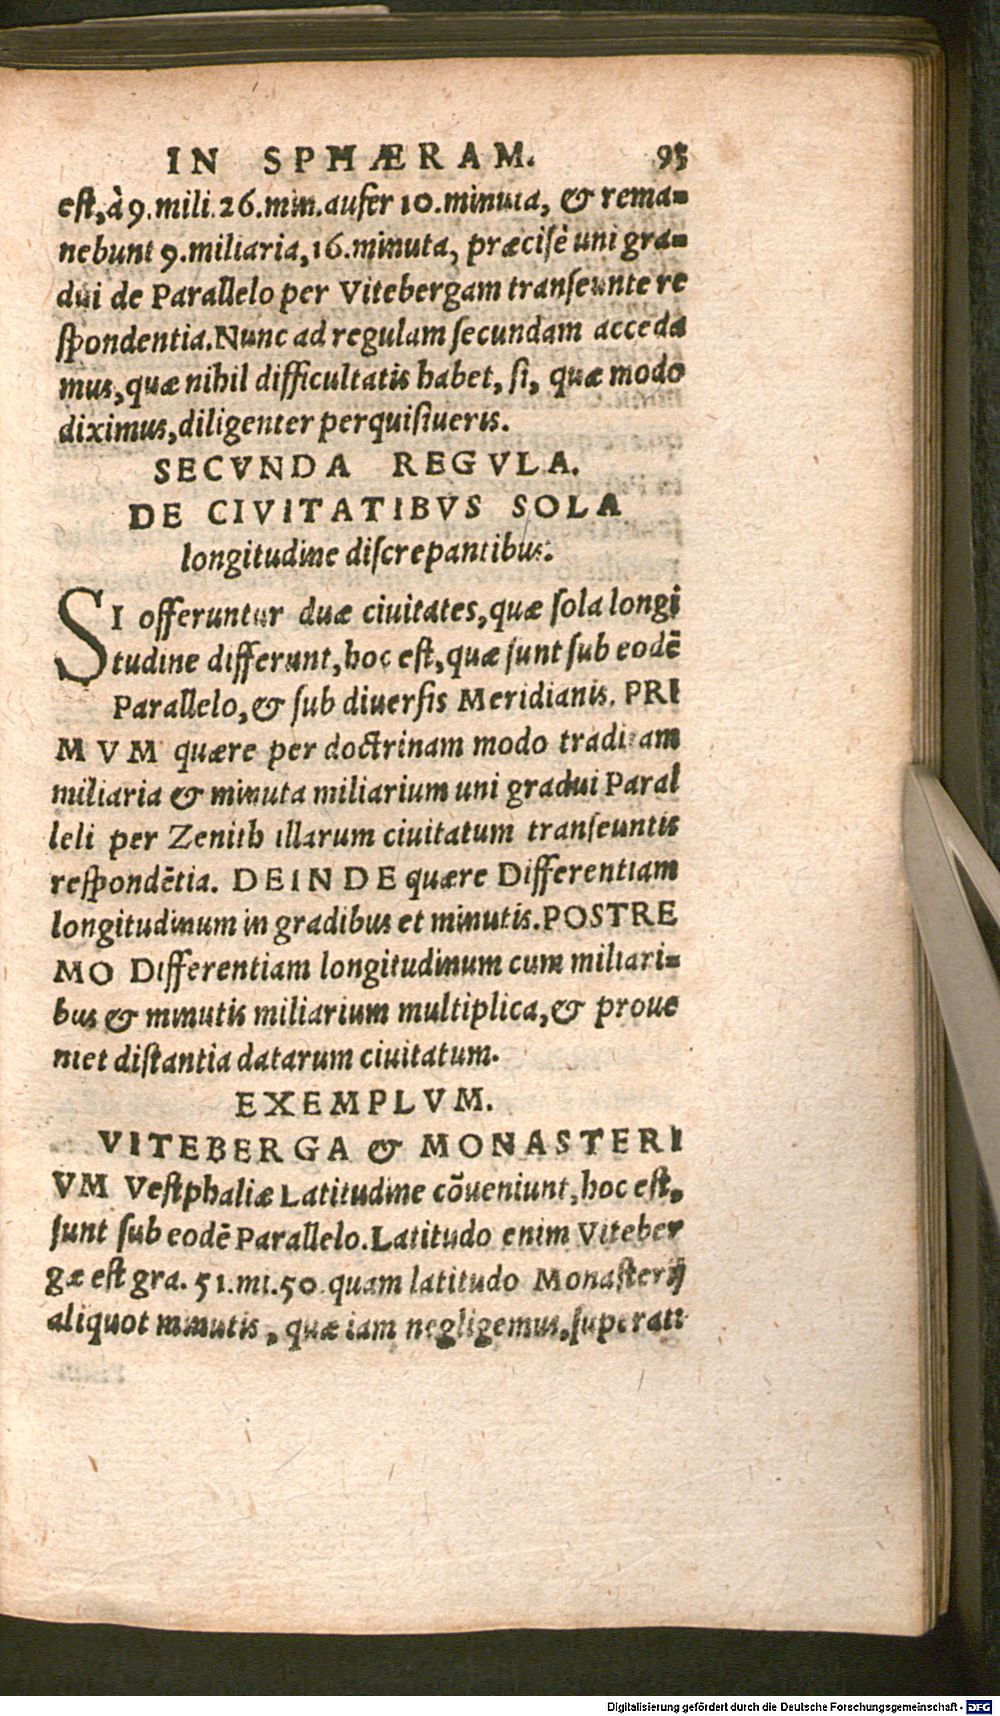 IN SPHÆRAM. 95
eſt, à 9. mili. 26. min. aufer 10. minuta, & rema-
nebunt 9. miliaria, 16. minuta, præciſè uni gra-
dui de Parallelo per Vitebergam tranſeunte re
ſpondentia. Nunc ad regulam ſecundam acceda
mus, quæ nihil difficultatis habet, ſi, quæ modo
diximus, diligenter perquiſiueris.
SECVNDA REGVLA.
DE CIVITATIBVS SOLA
longitudine diſcrepantibus.
SI offeruntur duæ ciuitates, quæ ſola longi
tudine differunt, hoc eſt, quæ ſunt ſub eodē
Parallelo, & ſub diuerſis Meridianis. PRI
MVM quære per doctrinam modo traditam
miliaria & minuta miliarium uni gradui Paral
leli per Zenith illarum ciuitatum tranſeuntis
reſpondētia. DEINDE quære Differentiam
longitudinum in gradibus et minutis. POSTRE
MO Differentiam longitudinum cum miliari-
bus & minutis miliarium multiplica, & proue
niet diſtantia datarum ciuitatum.
EXEMPLVM.
VITEBERGA & MONASTERI
VM Veſtphaliæ Latitudine cōueniunt, hoc eſt,
ſunt ſub eodē Parallelo. Latitudo enim Viteber
gæ eſt gra. 51. mi. 50. quam latitudo Monaſterij
aliquot minutis, quæ iam negligemus, ſuperat:
Digitalisierung gefördert durch die Deutsche Forschungsgemeinschaft - DFG